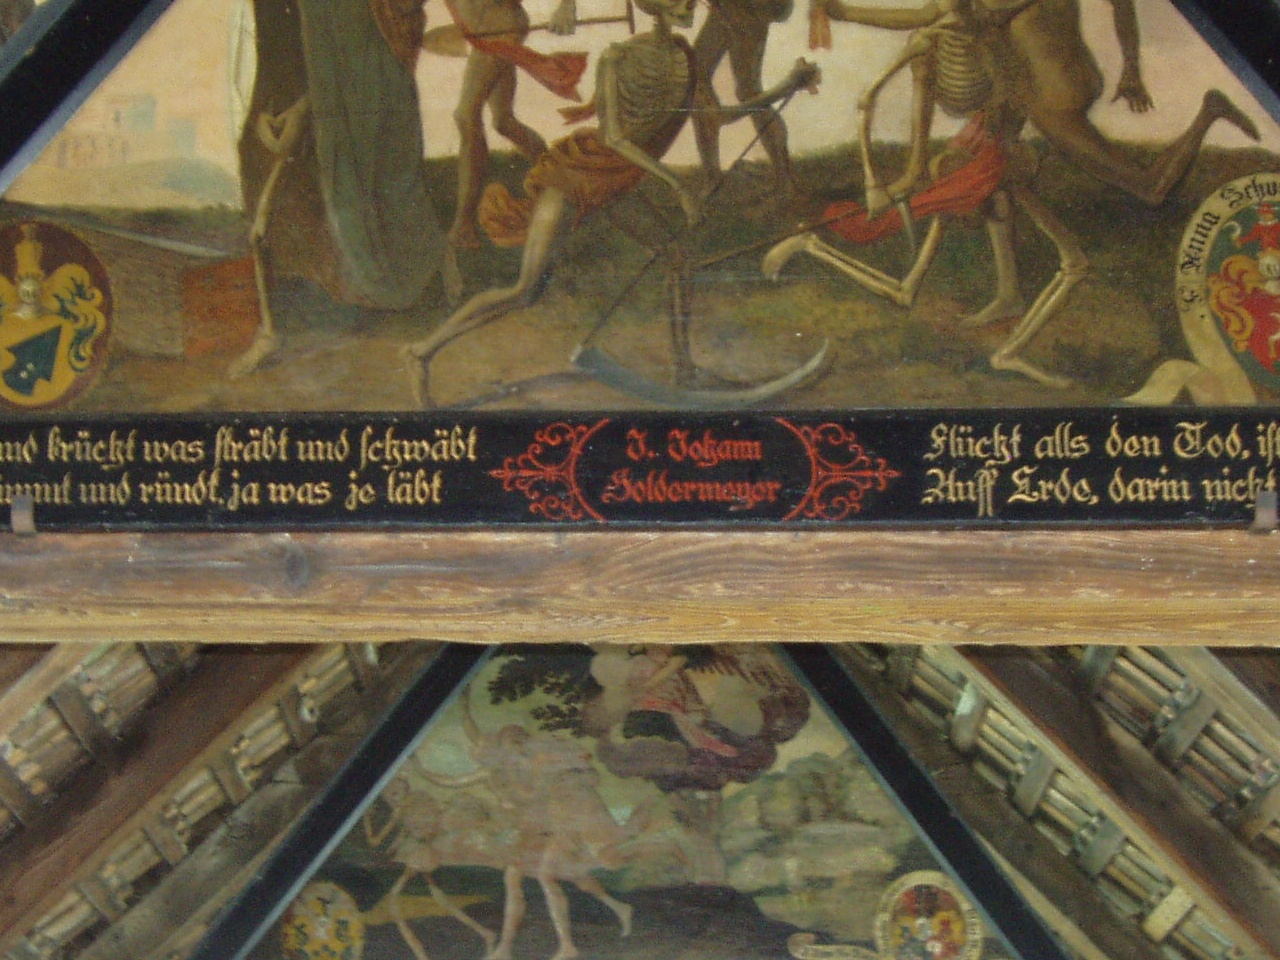 Anna
und brückt was sträbt und schwäbt
nimmt und ründt, ja was je läbt
J. Johann
Goldermeyer
Flückt alls den Tod, ist
Auff Erde, darin nicht